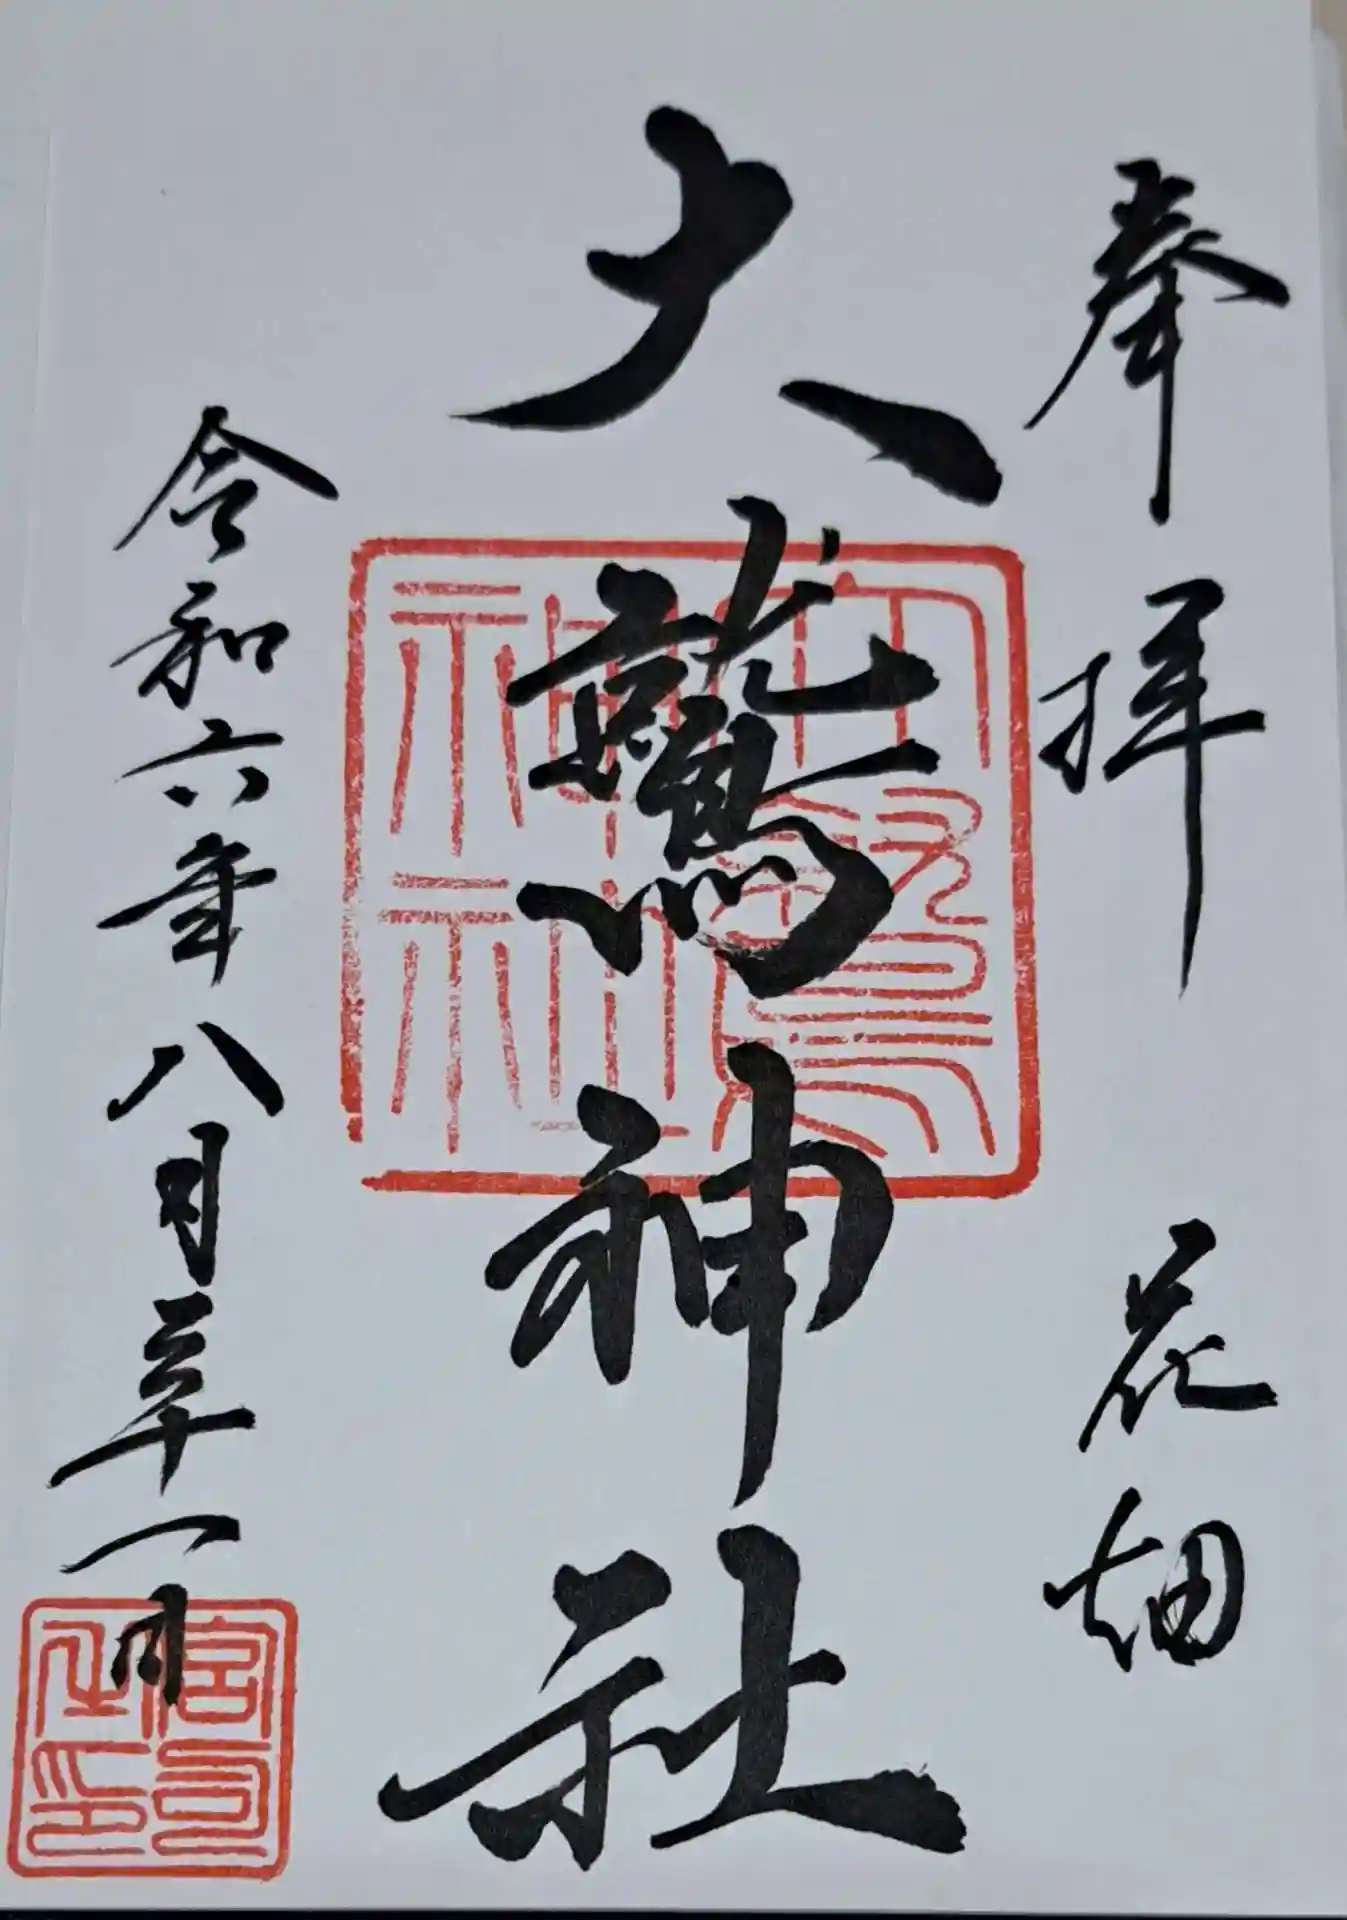 奉拝 花畑
大鷲神社
令和六年八月三十一日
大鷲神社
宮司之印